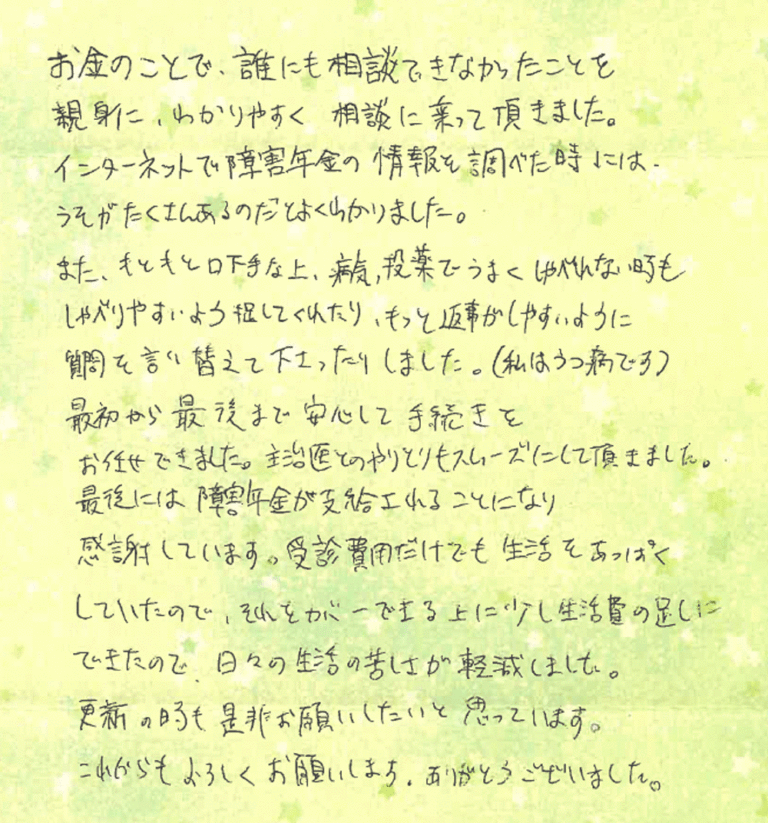 お金のことで、誰にも相談できなかったことを
親身に、わかりやすく 相談に乗って頂きました。
インターネットで障害年金の 情報を調べた時には、
うそがたくさんあるのだとよくわかりました。
また、もともと口下手な上、病気,投薬でうまくしゃべれない時も
しゃべりやすいよう促してくれたり、もっと返事がしやすいように
質問を言い替えて下さったりしました。(私はうつ病です)
最初から最後まで安心して手続きを
お任せできました。主治医とのやりとりもスムーズにして頂きました。
最後には障害年金が支給されることになり
感謝しています。受診費用だけでも生活をあっぱく
していたので、それをカバーできる上に少し生活費の足しに
できたので、日々の生活の苦しさが軽減しました。
更新の時も是非お願いしたいと思っています。
これからもよろしくお願いします。ありがとうございました。